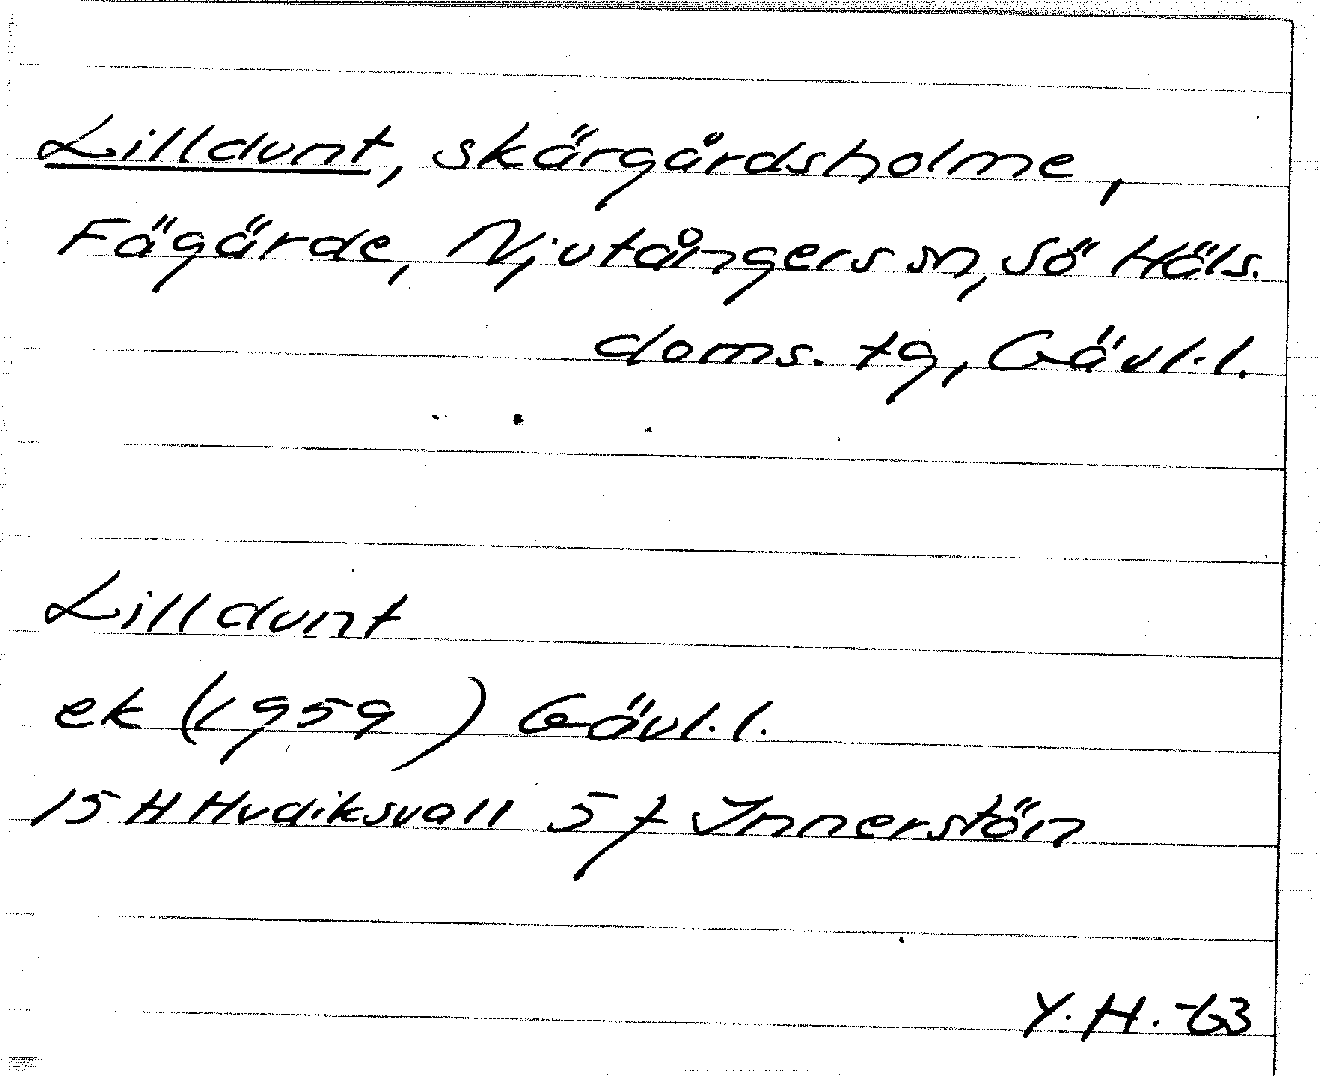 Lilldunt, skärgårdsholme,
Fägärde, Njutångers sn, Sö Häls.
doms. tg, Gävl.l.
Lilldunt
ek (1959) Gävl.l.
15 H Hudiksvall 5 f Innerstön
Y.H.-63